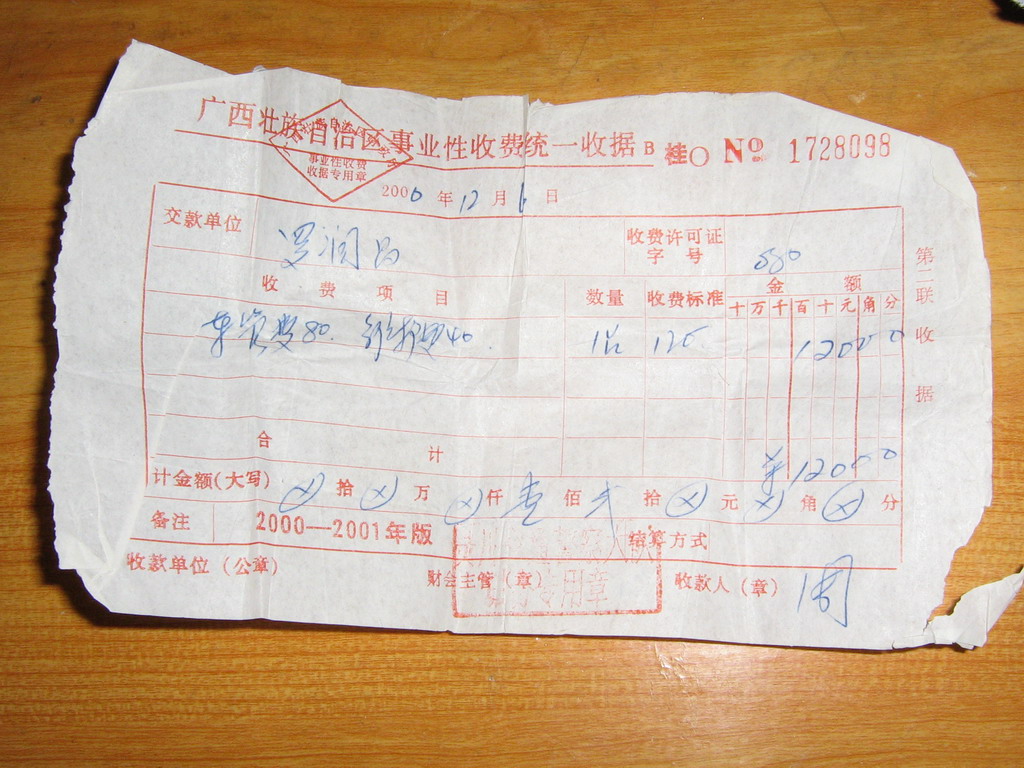 广西壮族自治区事业性收费统一收据 B 桂〇 № 1728098
事业性收费
收据专用章
2000 年 12 月 6 日
交款单位 罗润昌 收费许可证字号 580
收费项目 数量 收费标准 金额
十 万 千 百 十 元 角 分
80. 40. 120 12000
合计 ¥12000
计金额(大写) ⊗ 拾 ⊗ 万 ⊗ 仟 壹 佰 贰 拾 ⊗ 元 ⊗ 角 ⊗ 分
备注 2000—2001年版 结算方式
收款单位(公章) 财会主管(章) 收款人(章) 周
专用章
第二联 收据